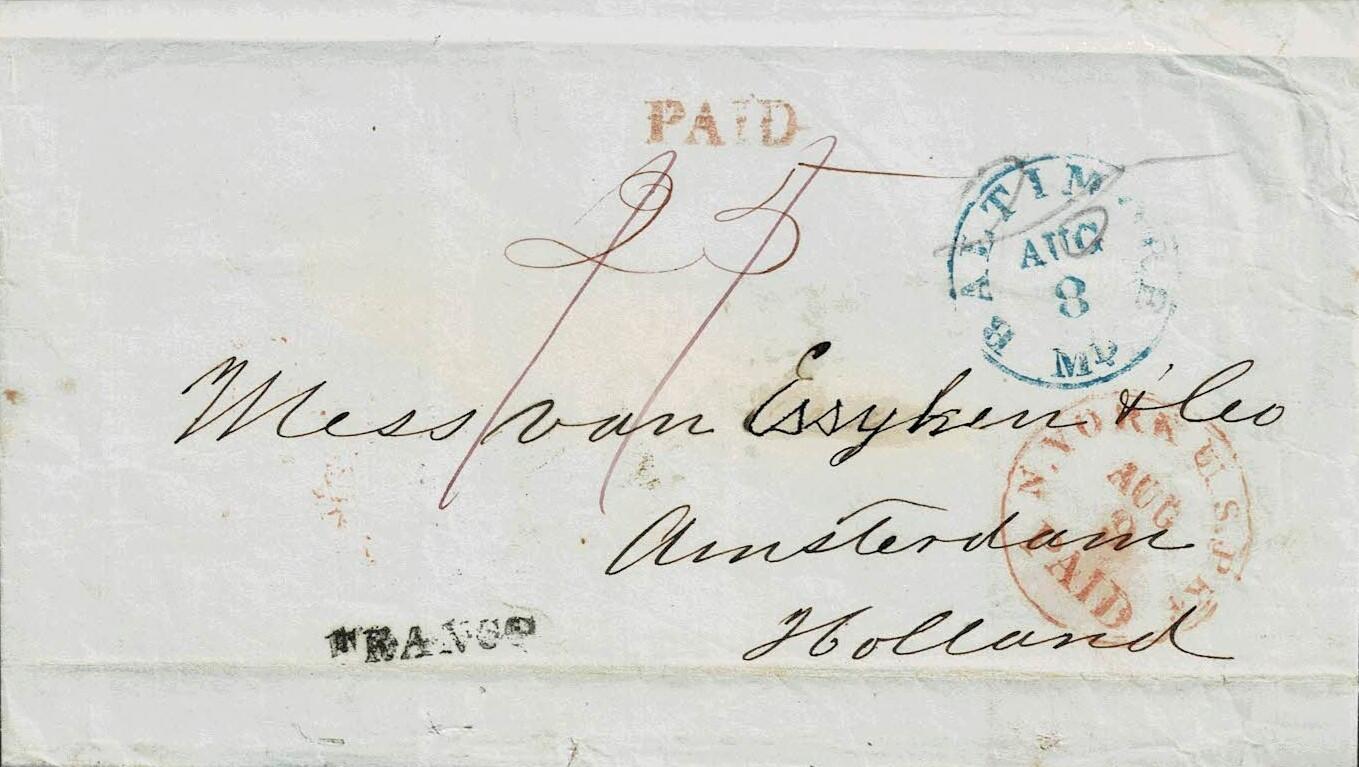 PAID
25
BALTIMORE
AUG
8
MD
Mess van Essyken & Co
N. YORK U.S. PKT
AUG
PAID
Amsterdam
Holland
FRANCO